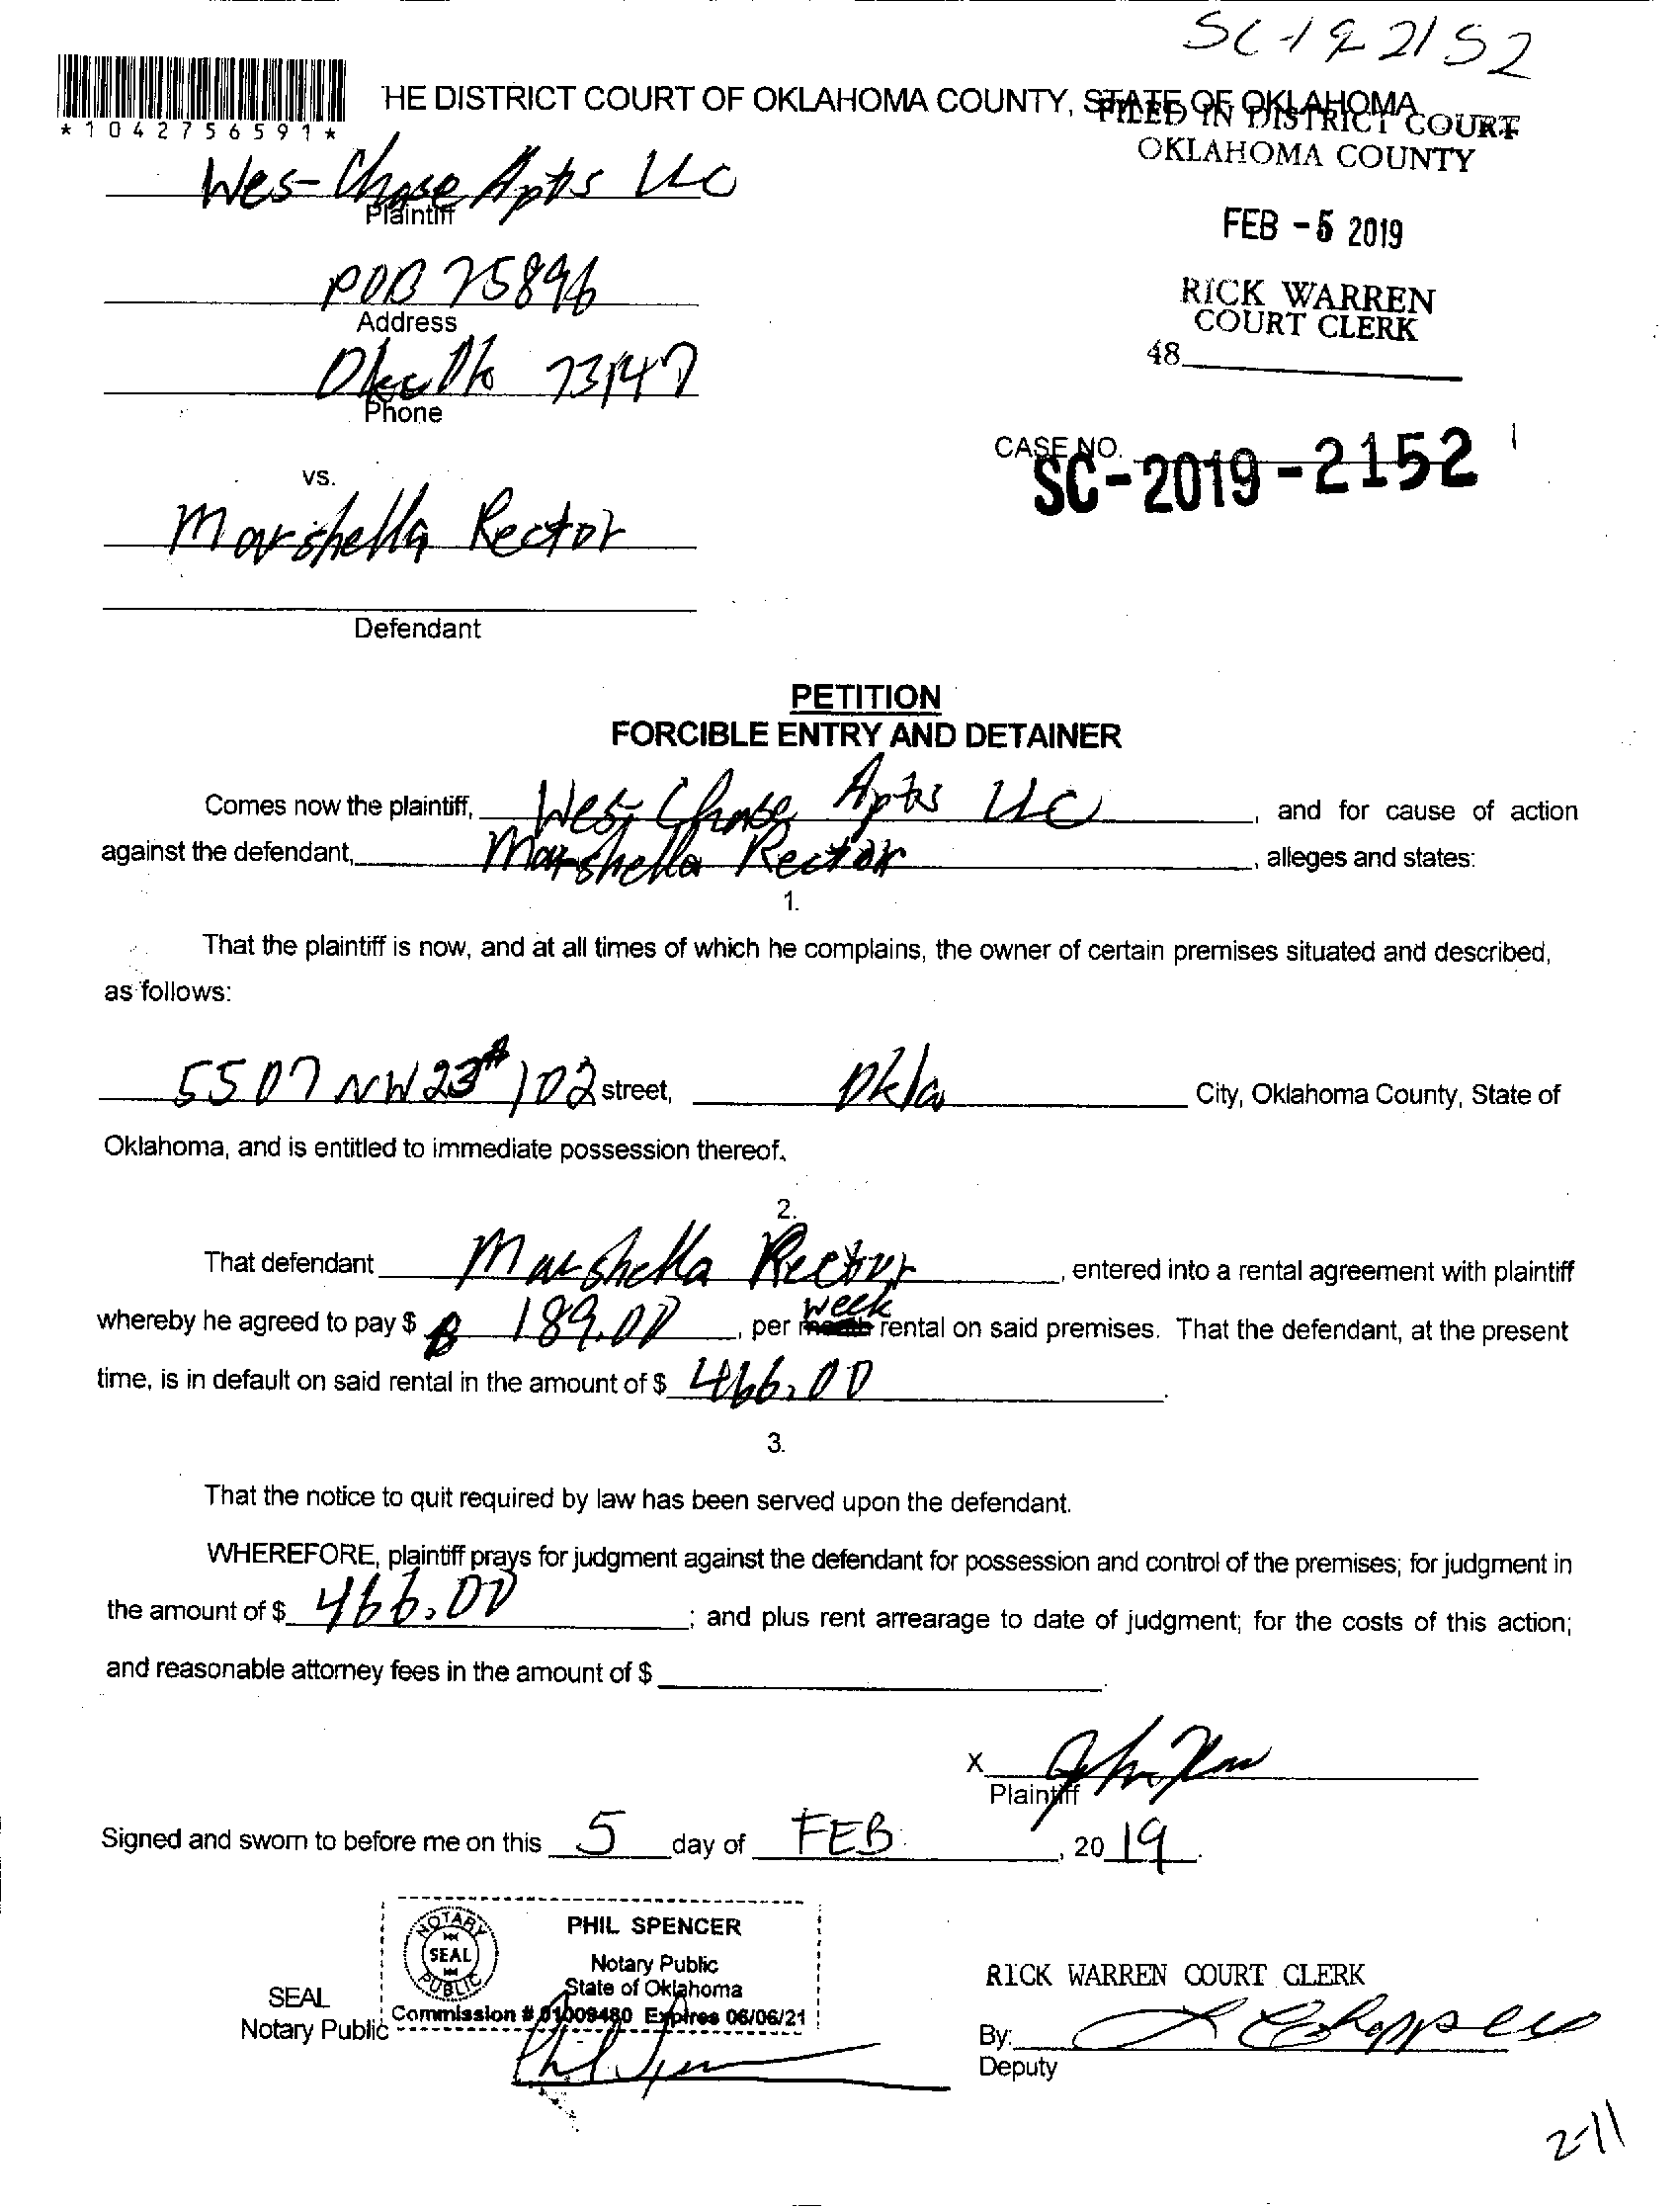 SC-19-2152
*1042756591*
HE DISTRICT COURT OF OKLAHOMA COUNTY, STATE OF OKLAHOMA
FILED IN DISTRICT COURT
OKLAHOMA COUNTY
Wes-Chase Apts LLC
Plaintiff
FEB -5 2019
POB 75896
Address
RICK WARREN
COURT CLERK
48
Okc Ok 73147
Phone
CASE NO.
SC-2019-2152
vs.
Marshella Rector
Defendant
PETITION
FORCIBLE ENTRY AND DETAINER
Comes now the plaintiff, Wes-Chase Apts LLC, and for cause of action
against the defendant, Marshella Rector, alleges and states:
1.
That the plaintiff is now, and at all times of which he complains, the owner of certain premises situated and described,
as follows:
5507 NW 23 # 102 street, Okla City, Oklahoma County, State of
Oklahoma, and is entitled to immediate possession thereof.
2.
That defendant Marshella Rector, entered into a rental agreement with plaintiff
whereby he agreed to pay $ 189.00, per week rental on said premises. That the defendant, at the present
time, is in default on said rental in the amount of $ 466.00.
3.
That the notice to quit required by law has been served upon the defendant.
WHEREFORE, plaintiff prays for judgment against the defendant for possession and control of the premises; for judgment in
the amount of $ 466.00; and plus rent arrearage to date of judgment; for the costs of this action;
and reasonable attorney fees in the amount of $
X
Plaintiff
Signed and sworn to before me on this 5 day of FEB, 2019.
NOTARY PUBLIC
SEAL
PHIL SPENCER
Notary Public
State of Oklahoma
Commission # 01009480 Expires 06/06/21
SEAL
Notary Public
Phil Spencer
RICK WARREN COURT CLERK
By:
Deputy
2-11